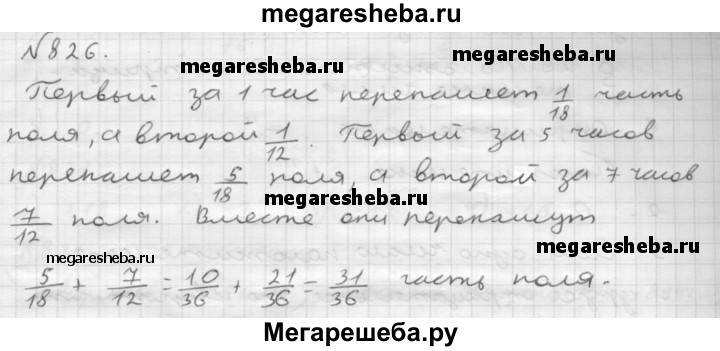 megaresheba.ru
№826. megaresheba.ru
megaresheba.ru
Первый за 1 час перепашет 1/18 часть
поля, а второй 1/12. Первый за 5 часов
megaresheba.ru
перепашет 5/18 поля, а второй за 7 часов
7/12 поля. Вместе они перепашут
megaresheba.ru
megaresheba.ru
5/18 + 7/12 = 10/36 + 21/36 = 31/36 часть поля.
Мегарешеба.ру